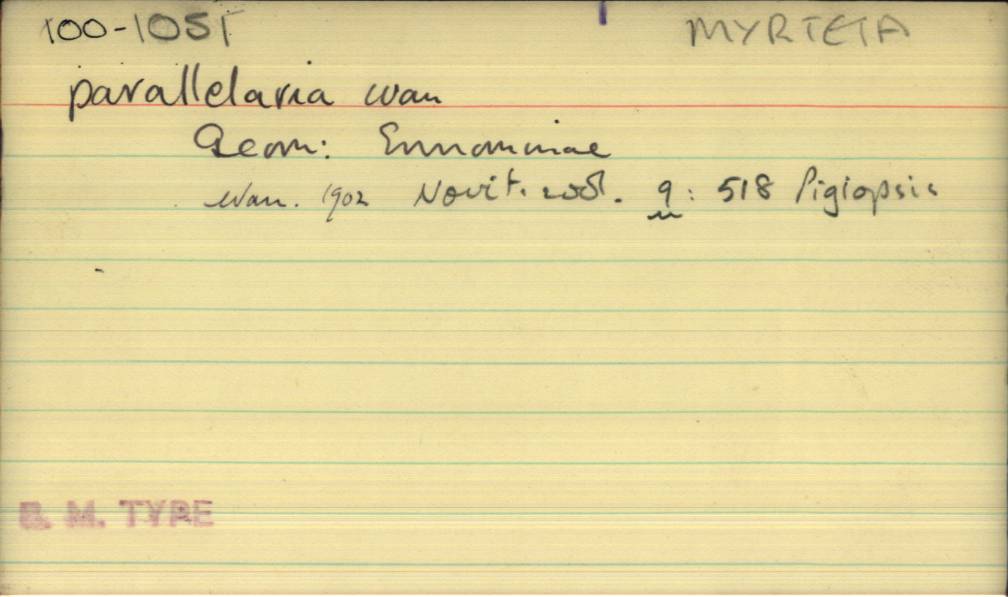 100-1051 MYRTETA
parallelaria War
Geom: Ennominae
War. 1902 Novit. zool. 9: 518 Pigiopsis
B. M. TYPE